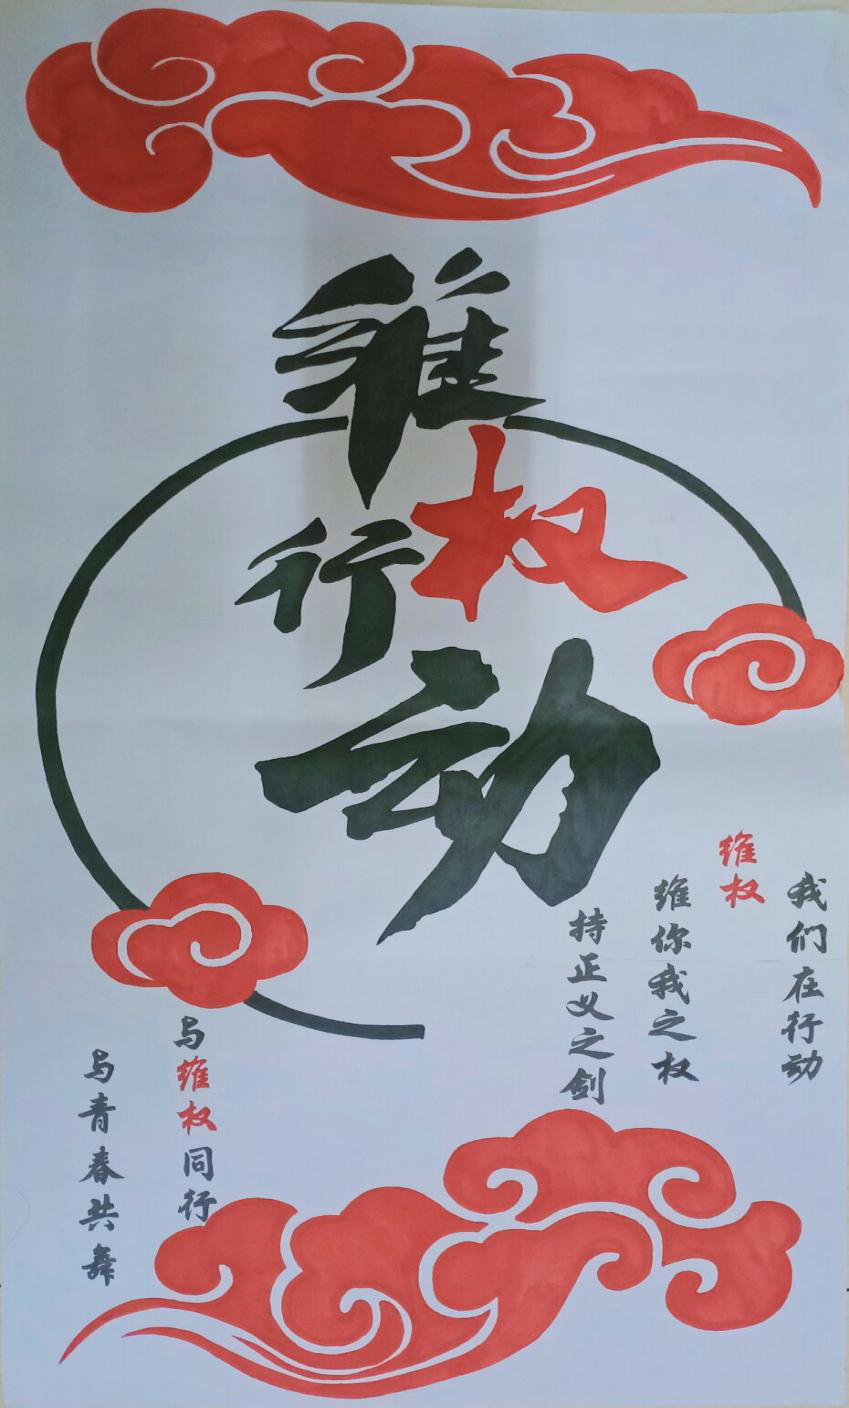 维权
行动
维权
我们在行动
维你我之权
持正义之剑
与维权同行
与青春共舞